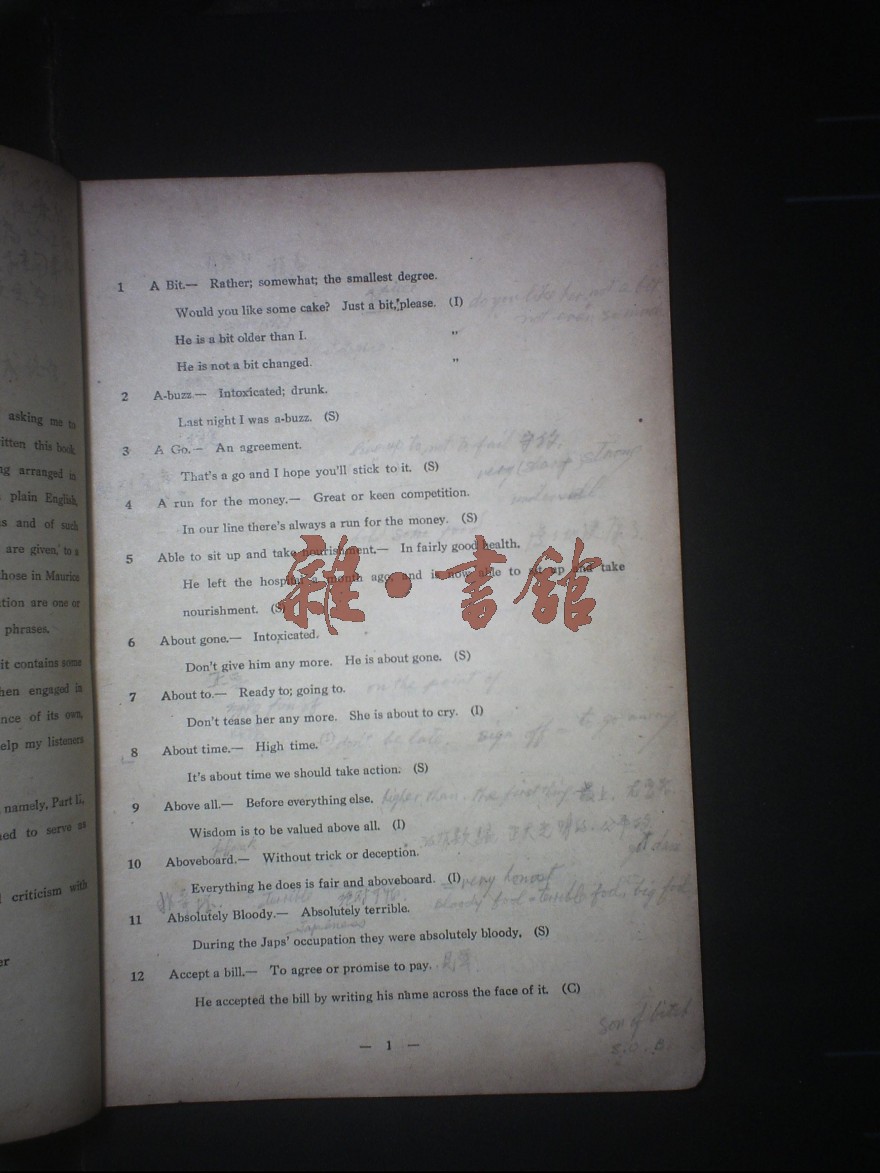 asking me to
itten this book
ng arranged in
plain English,
s and of such
are given, to a
hose in Maurice
tion are one or
phrases.
it contains some
hen engaged in
nce of its own,
elp my listeners
namely, Part II,
ned to serve as
criticism with
er
1 A Bit.— Rather; somewhat; the smallest degree.
Would you like some cake? Just a bit, please. (I)
He is a bit older than I. "
He is not a bit changed. "
2 A-buzz.— Intoxicated; drunk.
Last night I was a-buzz. (S)
3 A Go.— An agreement.
That's a go and I hope you'll stick to it. (S)
4 A run for the money.— Great or keen competition.
In our line there's always a run for the money. (S)
5 Able to sit up and take nourishment.— In fairly good health.
He left the hospital a month ago, and is now able to sit up and take
nourishment. (S)
雜·書舘
6 About gone.— Intoxicated.
Don't give him any more. He is about gone. (S)
7 About to.— Ready to; going to.
on the point of
Don't tease her any more. She is about to cry. (I)
8 About time.— High time.
sign off = to go away
It's about time we should take action. (S)
9 Above all.— Before everything else. higher than. the first thing 最上.
Wisdom is to be valued above all. (I)
10 Aboveboard.— Without trick or deception.
Everything he does is fair and aboveboard. (I) very honest
11 Absolutely Bloody.— Absolutely terrible. bloody fool = terrible fool, big fool
During the Japs' occupation they were absolutely bloody. (S)
12 Accept a bill.— To agree or promise to pay.
He accepted the bill by writing his name across the face of it. (C)
son of bitch
S.O.B.
— 1 —